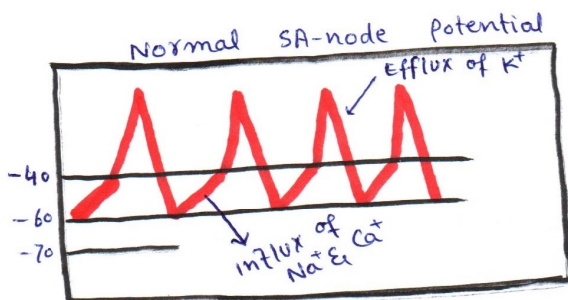 Normal SA-node Potential
Efflux of K+
-40
-60
-70
Influx of
Na+ & Ca+